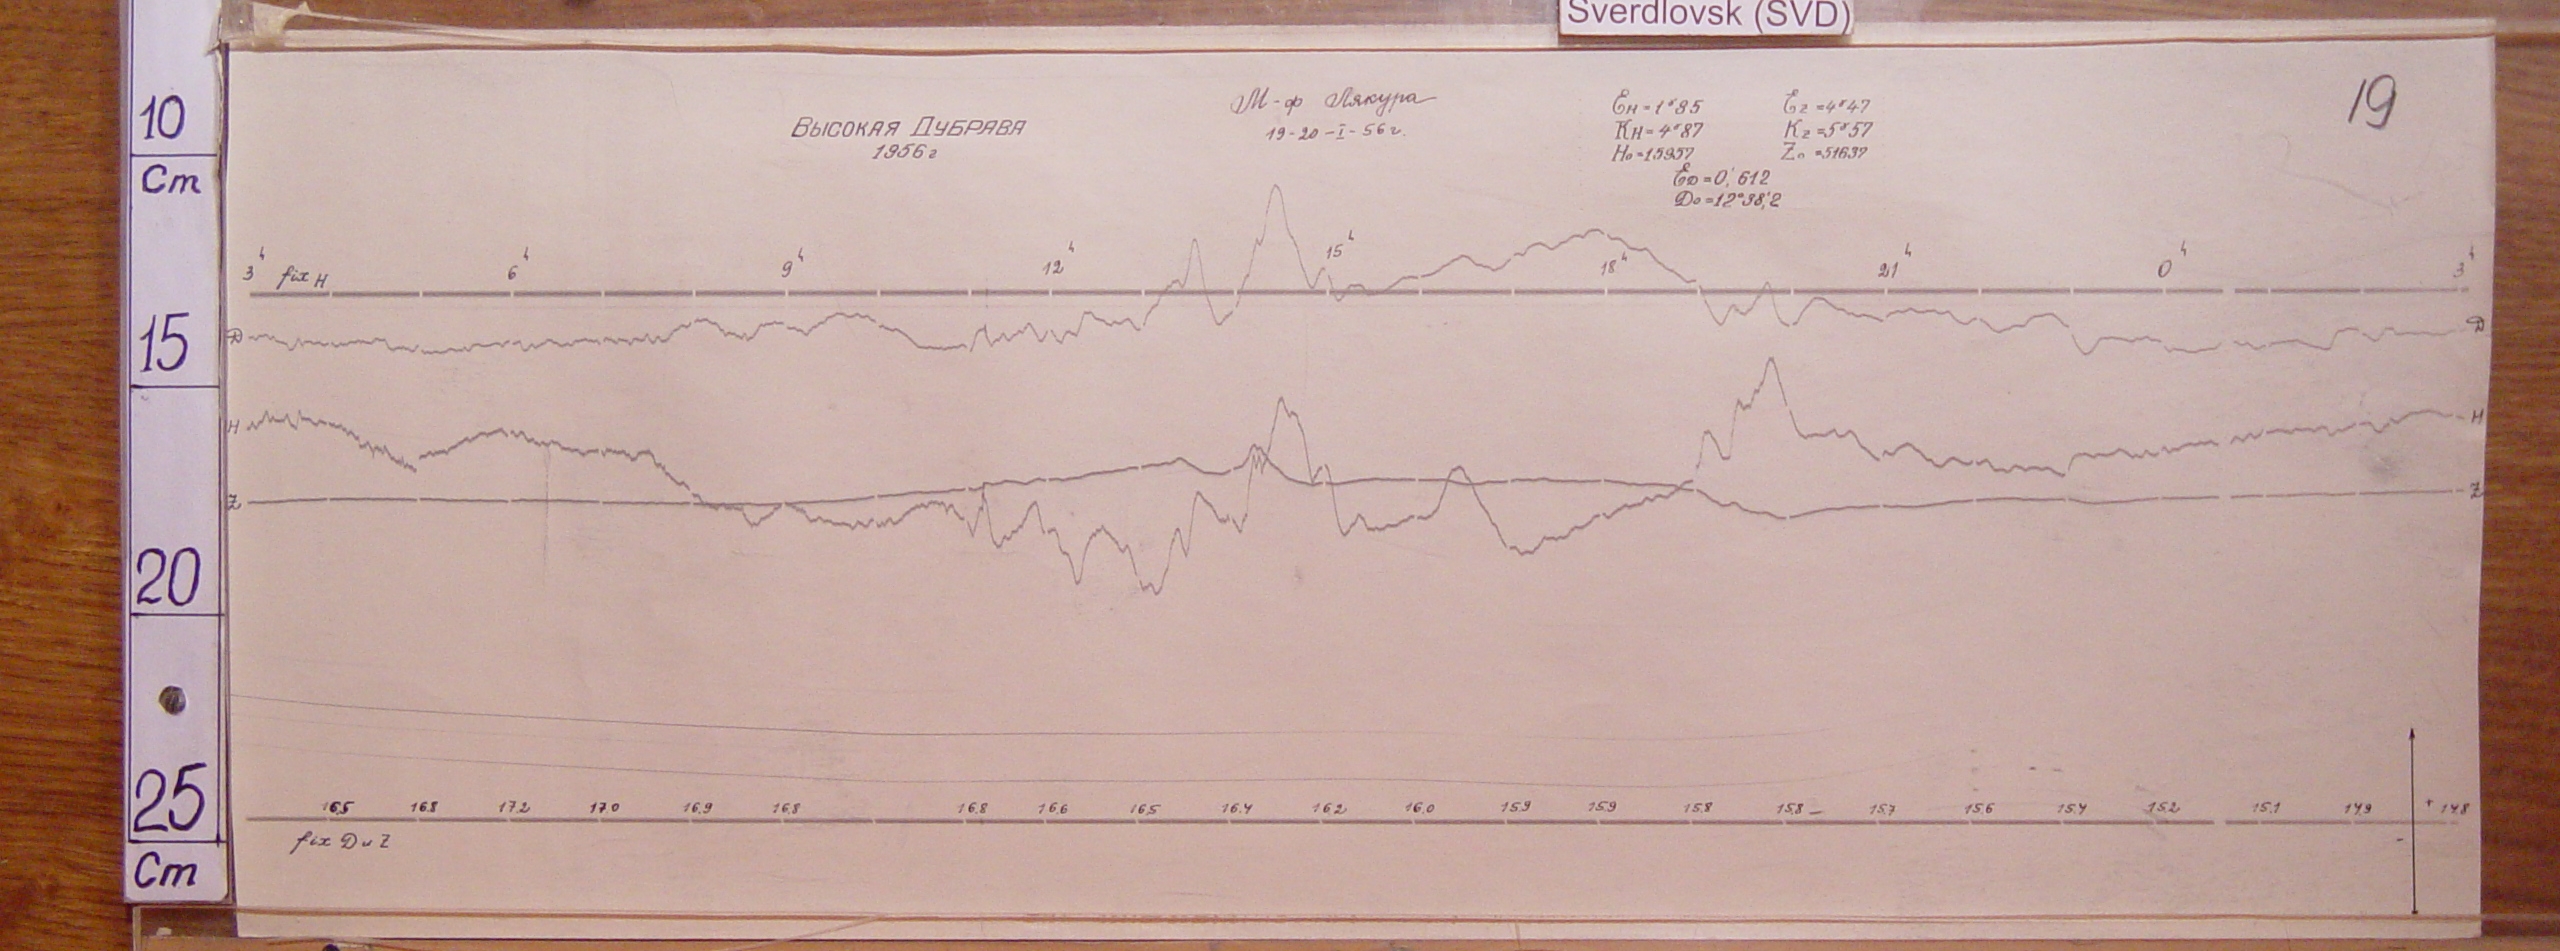 Sverdlovsk (SVD)
10
Cm
15
20
25
Cm
19
Высокая Дубрава
1956 г
М-ф Лякура
19-20-I-56 г.
Ен=1ᵞ85
Кн=4ᵞ87
Н₀=15957
Ez=4ᵞ47
Kz=5ᵞ57
Z₀=51637
ED=0,'612
D₀=12°38,'2
3ч 6ч 9ч 12ч 15ч 18ч 21ч 0ч 3ч
fix H
D D
H H
Z Z
16.5 16.8 17.2 17.0 16.9 16.8 16.8 16.6 16.5 16.4 16.2 16.0 15.9 15.9 15.8 15.8 15.7 15.6 15.4 15.2 15.1 14.9 + 14.8
-
fix D и Z